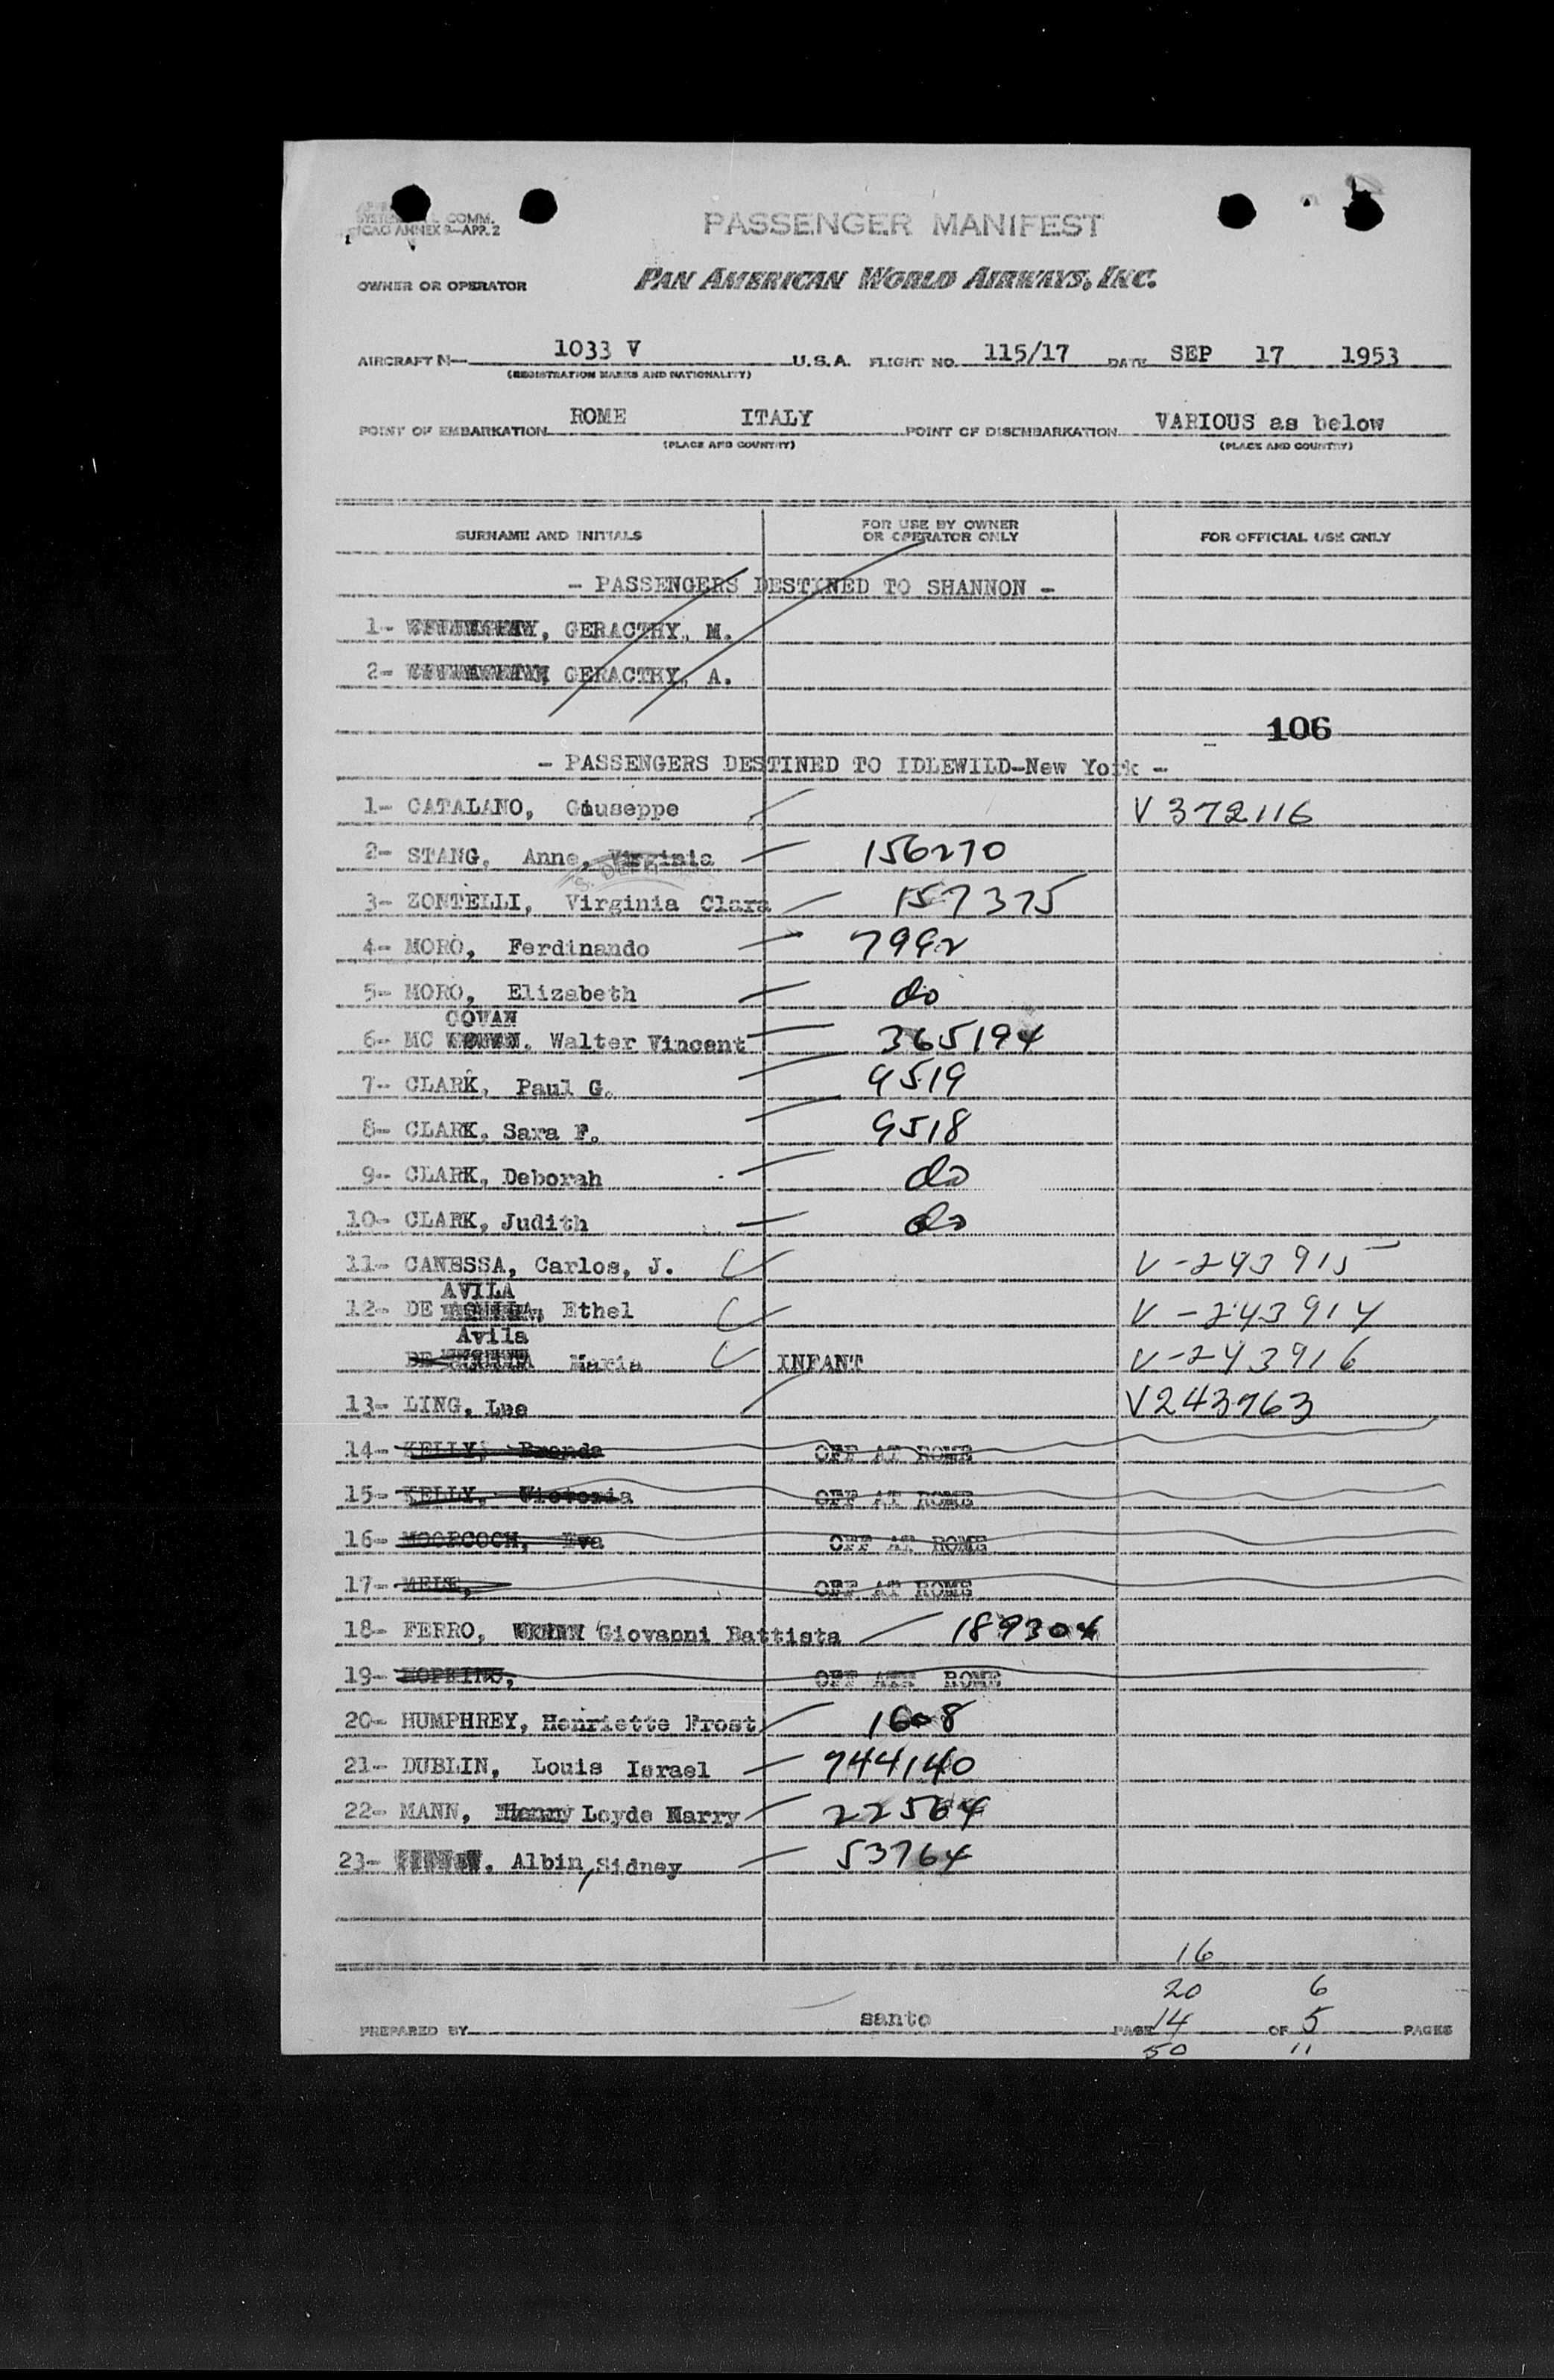 COMM.
ICAO ANNEX 9—APP. 2
PASSENGER MANIFEST
OWNER OR OPERATOR
PAN AMERICAN WORLD AIRWAYS, INC.
AIRCRAFT N— 1033 V U.S.A. FLIGHT NO. 115/17 DATE SEP 17 1953
(REGISTRATION MARKS AND NATIONALITY)
POINT OF EMBARKATION ROME ITALY POINT OF DISEMBARKATION VARIOUS as below
(PLACE AND COUNTRY) (PLACE AND COUNTRY)
SURNAME AND INITIALS
FOR USE BY OWNER
OR OPERATOR ONLY
FOR OFFICIAL USE ONLY
- PASSENGERS DESTINED TO SHANNON -
1- GERACTHY, M.
2- GERACTHY, A.
106
- PASSENGERS DESTINED TO IDLEWILD-New York -
1- CATALANO, Giuseppe V 372116
2- STANG, Anne, Virginia 156270
3- ZONTELLI, Virginia Clara 157375
4- MORO, Ferdinando 7992
5- MORO, Elizabeth do
COWAN
6- MC , Walter Vincent 365194
7- CLARK, Paul G. 9519
8- CLARK, Sara F. 9518
9- CLARK, Deborah do
10- CLARK, Judith do
11- CANESSA, Carlos, J. V-243915
AVILA
12- DE , Ethel V-243914
Avila
DE Maria INFANT V-243916
13- LING, Lue V243763
14- KELLY, Brenda OFF AT ROME
15- KELLY, Victoria OFF AT ROME
16- MOORCOCH, Eva OFF AT ROME
17- OFF AT ROME
18- FERRO, Giovanni Battista 189304
19- HOPKINS, OFF AT ROME
20- HUMPHREY, Henriette Frost 1608
21- DUBLIN, Louis Israel 944140
22- MANN, Loyde Harry 22564
23- Albin, Sidney 53764
16
20 6
PREPARED BY santo PAGE 14 OF 5 PAGES
50 11